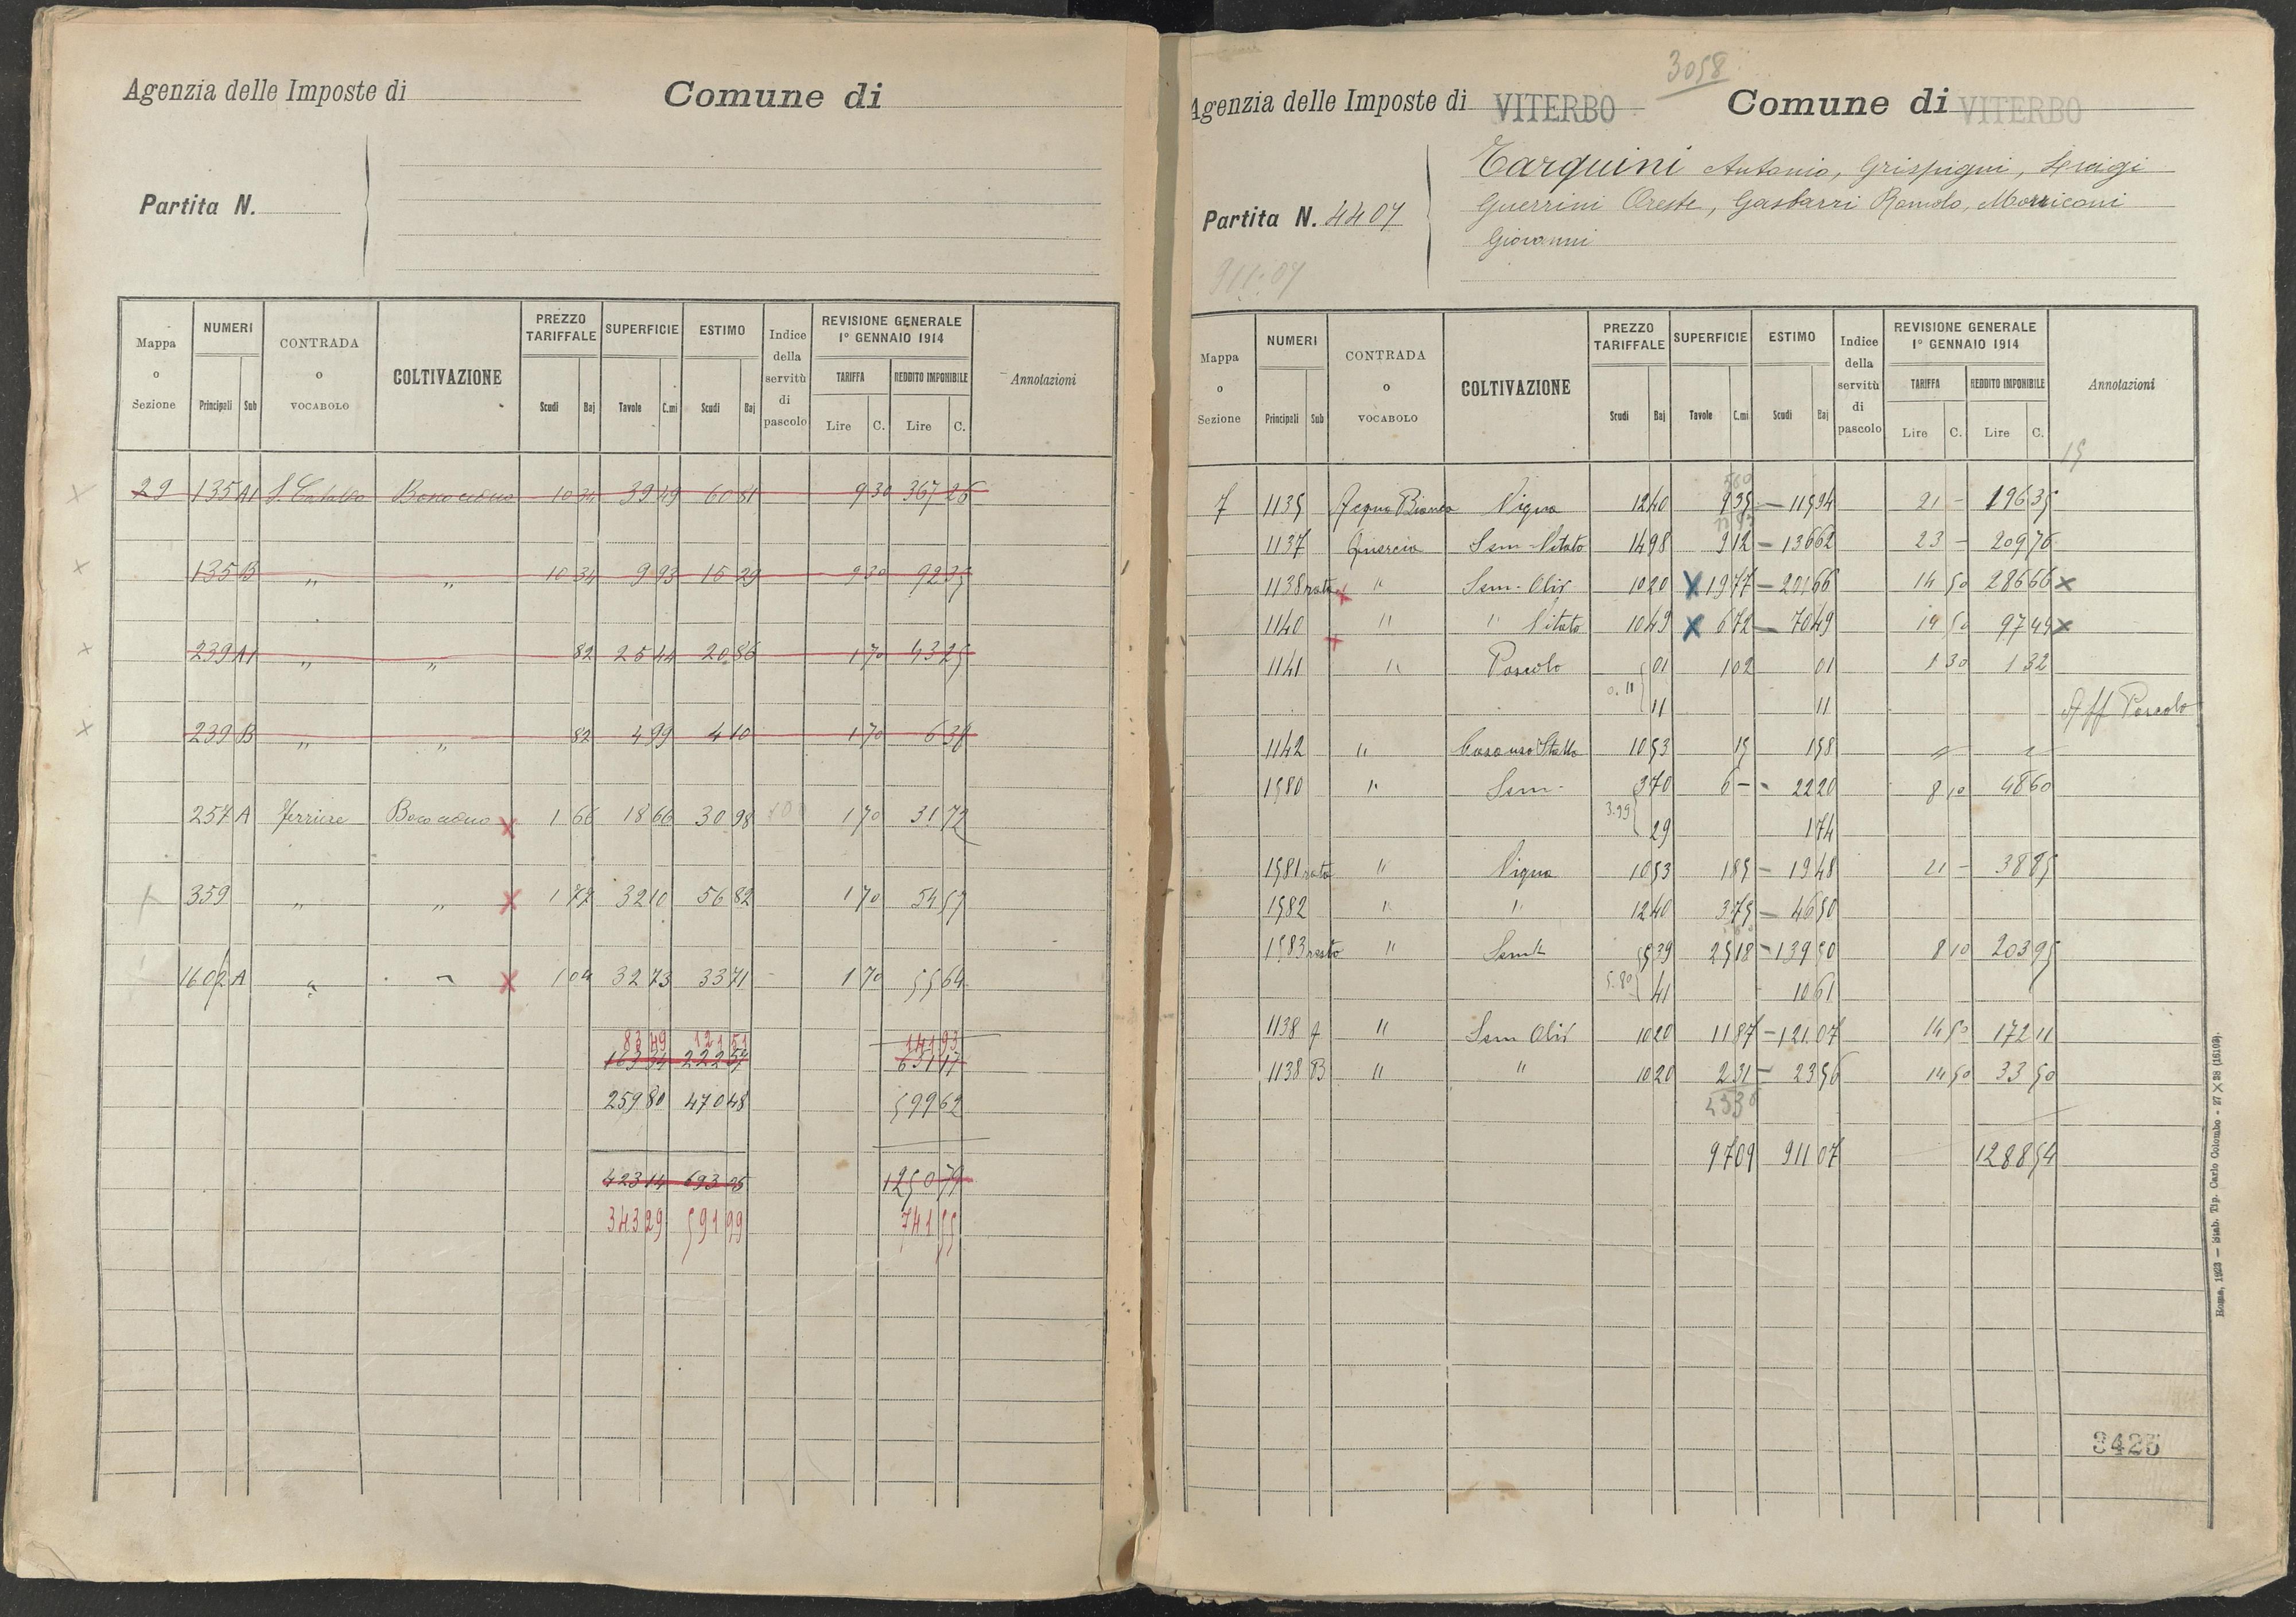 Agenzia delle Imposte di Comune di
Partita N.
Mappa o Sezione NUMERI Principali Sub CONTRADA o VOCABOLO COLTIVAZIONE PREZZO TARIFFALE Scudi Baj SUPERFICIE Tavole C.mi ESTIMO Scudi Baj Indice della servitù di pascolo REVISIONE GENERALE 1° GENNAIO 1914 TARIFFA Lire C. REDDITO IMPONIBILE Lire C. Annotazioni
29 135 A1 S. Cataldo 10 34 39 49 60 81 9 30 367 26
135 B " " 10 34 9 93 15 29 9 30 92 35
239 A1 " " 82 25 44 20 86 1 70 43 25
239 B " " 82 4 99 4 10 1 70 6 38
257 A 1 66 18 66 30 98 1 70 31 72
359 " " 1 77 32 10 56 82 1 70 54 57
1602 A " " 1 04 32 73 33 71 1 70 55 64
83 49 121 51 141 93
163 34 222 57 651 17
259 80 470 48 599 62
423 14 693 05 1250 79
343 29 591 99 741 55
3058
Agenzia delle Imposte di VITERBO Comune di VITERBO
Tarquini Antonio, Grispigni, Luigi
Partita N. 4407 Guerrini Oreste, Gasbarri Romolo, Morriconi
Giovanni
911:07
Mappa o Sezione NUMERI Principali Sub CONTRADA o VOCABOLO COLTIVAZIONE PREZZO TARIFFALE Scudi Baj SUPERFICIE Tavole C.mi ESTIMO Scudi Baj Indice della servitù di pascolo REVISIONE GENERALE 1° GENNAIO 1914 TARIFFA Lire C. REDDITO IMPONIBILE Lire C. Annotazioni
15
7 1135 Acqua Bianca Vigna 12 40 9 35 – 115 94 21 – 196 35
1137 Quercia Sem-Vitato 14 98 9 12 – 136 62 23 – 209 76
1138 rata " Sem-Oliv 10 20 X 19 77 – 201 66 14 50 286 66 x
1140 " " Vitato 10 49 X 6 72 – 70 49 14 50 97 44 x
1141 " Pascolo 01 1 02 01 1 30 1 32
0.11 11 11 Aff Pascolo
1142 " Casa uso Stalla 10 53 15 1 58 " "
1580 " Sem- 3 70 6 – 22 20 8 10 48 60
3.99 29 1 74
1581 rata " Vigna 10 53 1 85 – 19 48 21 – 38 85
1582 " " 12 40 3 75 – 46 50
1583 resto " 5 39 25 18 – 139 50 8 10 203 95
5.80 41 10 61
1138 A " Sem Oliv 10 20 11 87 – 121.07 14 50 172 11
1138 B " " 10 20 2 31 – 23 56 14 50 33 50
97 09 911 07 1288 54
3425
Roma, 1923 — Stab. Tip. Carlo Colombo - 27 X 38 (16103).